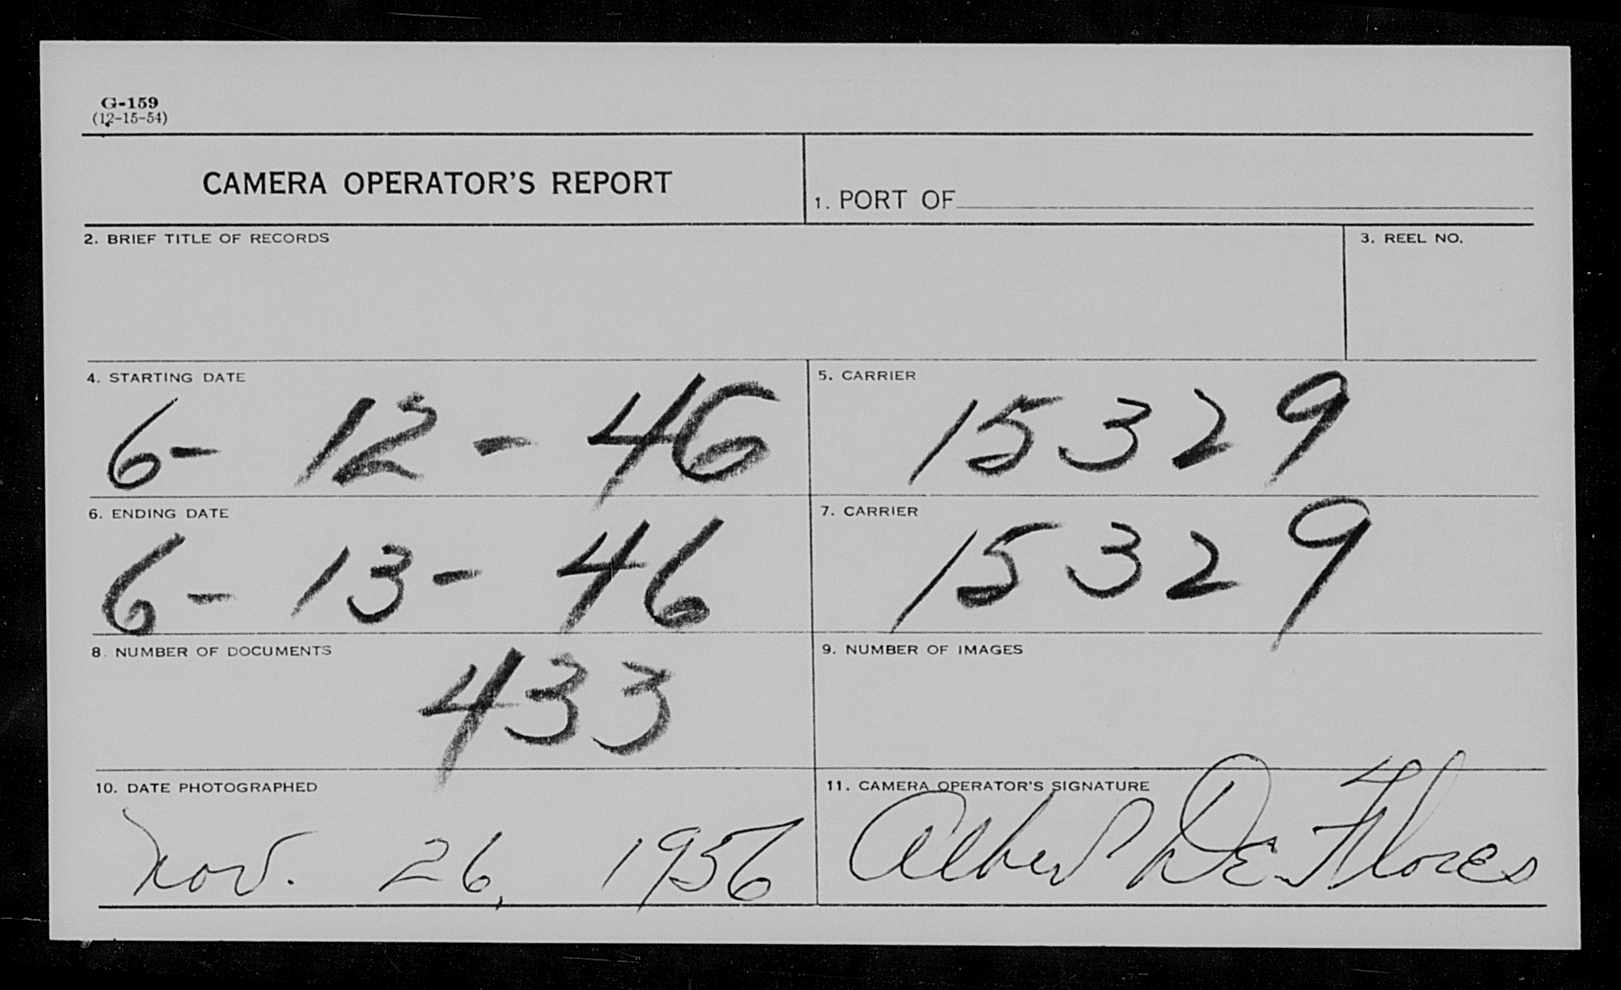 G-159
(12-15-54)
CAMERA OPERATOR'S REPORT
1. PORT OF
2. BRIEF TITLE OF RECORDS
3. REEL NO.
4. STARTING DATE
6- 12 - 46
5. CARRIER
15329
6. ENDING DATE
6- 13- 46
7. CARRIER
15329
8. NUMBER OF DOCUMENTS
433
9. NUMBER OF IMAGES
10. DATE PHOTOGRAPHED
Nov. 26, 1956
11. CAMERA OPERATOR'S SIGNATURE
Albert De Flores